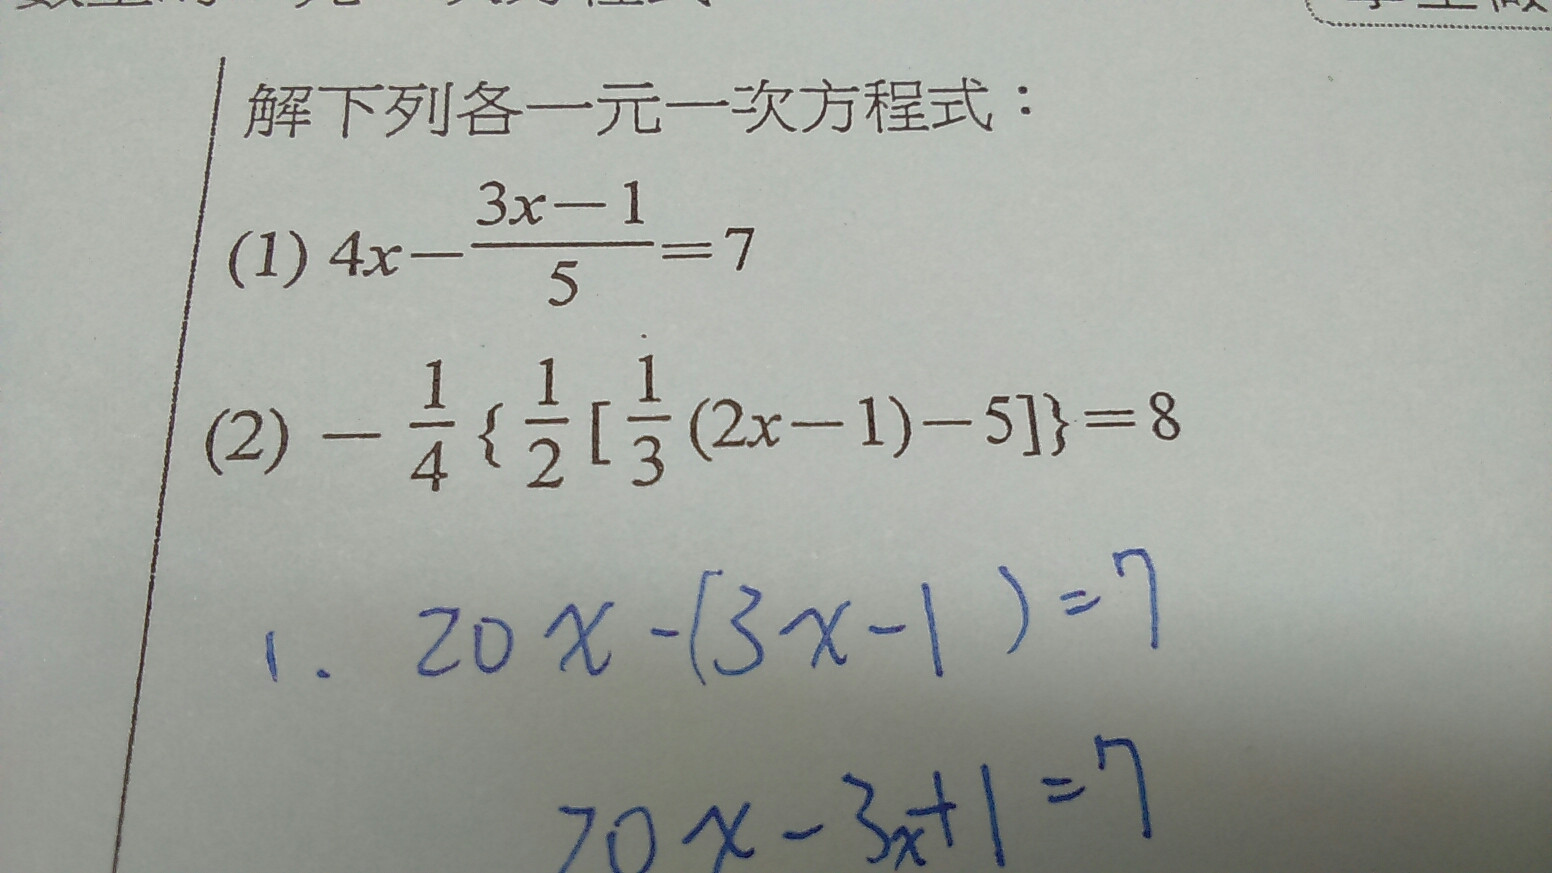 解下列各一元一次方程式：
(1) 4x－\frac{3x－1}{5}＝7
(2) －\frac{1}{4}{\frac{1}{2}[\frac{1}{3}(2x－1)－5]}＝8
1. 20x-(3x-1)=7
20x-3x+1=7